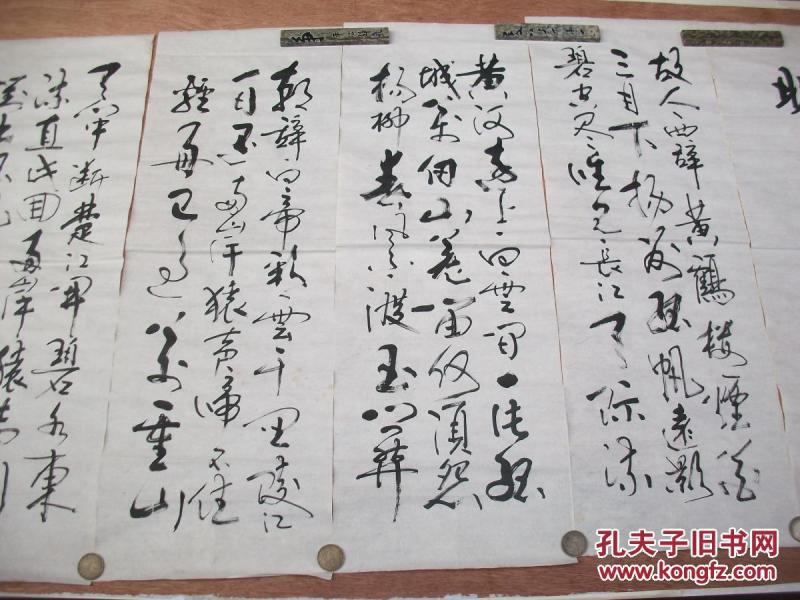 故人西辭黄鶴楼煙花
三月下扬州孤帆遠影
碧空尽唯见長江天际流
黄河遠上白雲间一片孤
城万仞山羌笛何须怨
杨柳春风不渡玉门
朝辭白帝彩雲千里陵江
一日还两岸猿声啼不住
轻舟已过万重山
天门中断楚江開碧水東
流直此回两岸
孔夫子旧书网
www.kongfz.com